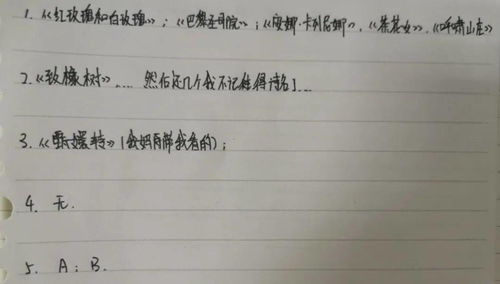 1. 《红玫瑰和白玫瑰》；《巴黎圣母院》；《安娜·卡列尼娜》，《茶花女》，《呼啸山庄》
2. 《致橡树》.... 然后还几个我不记得诗名了...
3. 《甄嬛传》(我妈陪我看的)；
4. 无.
5. A；B.